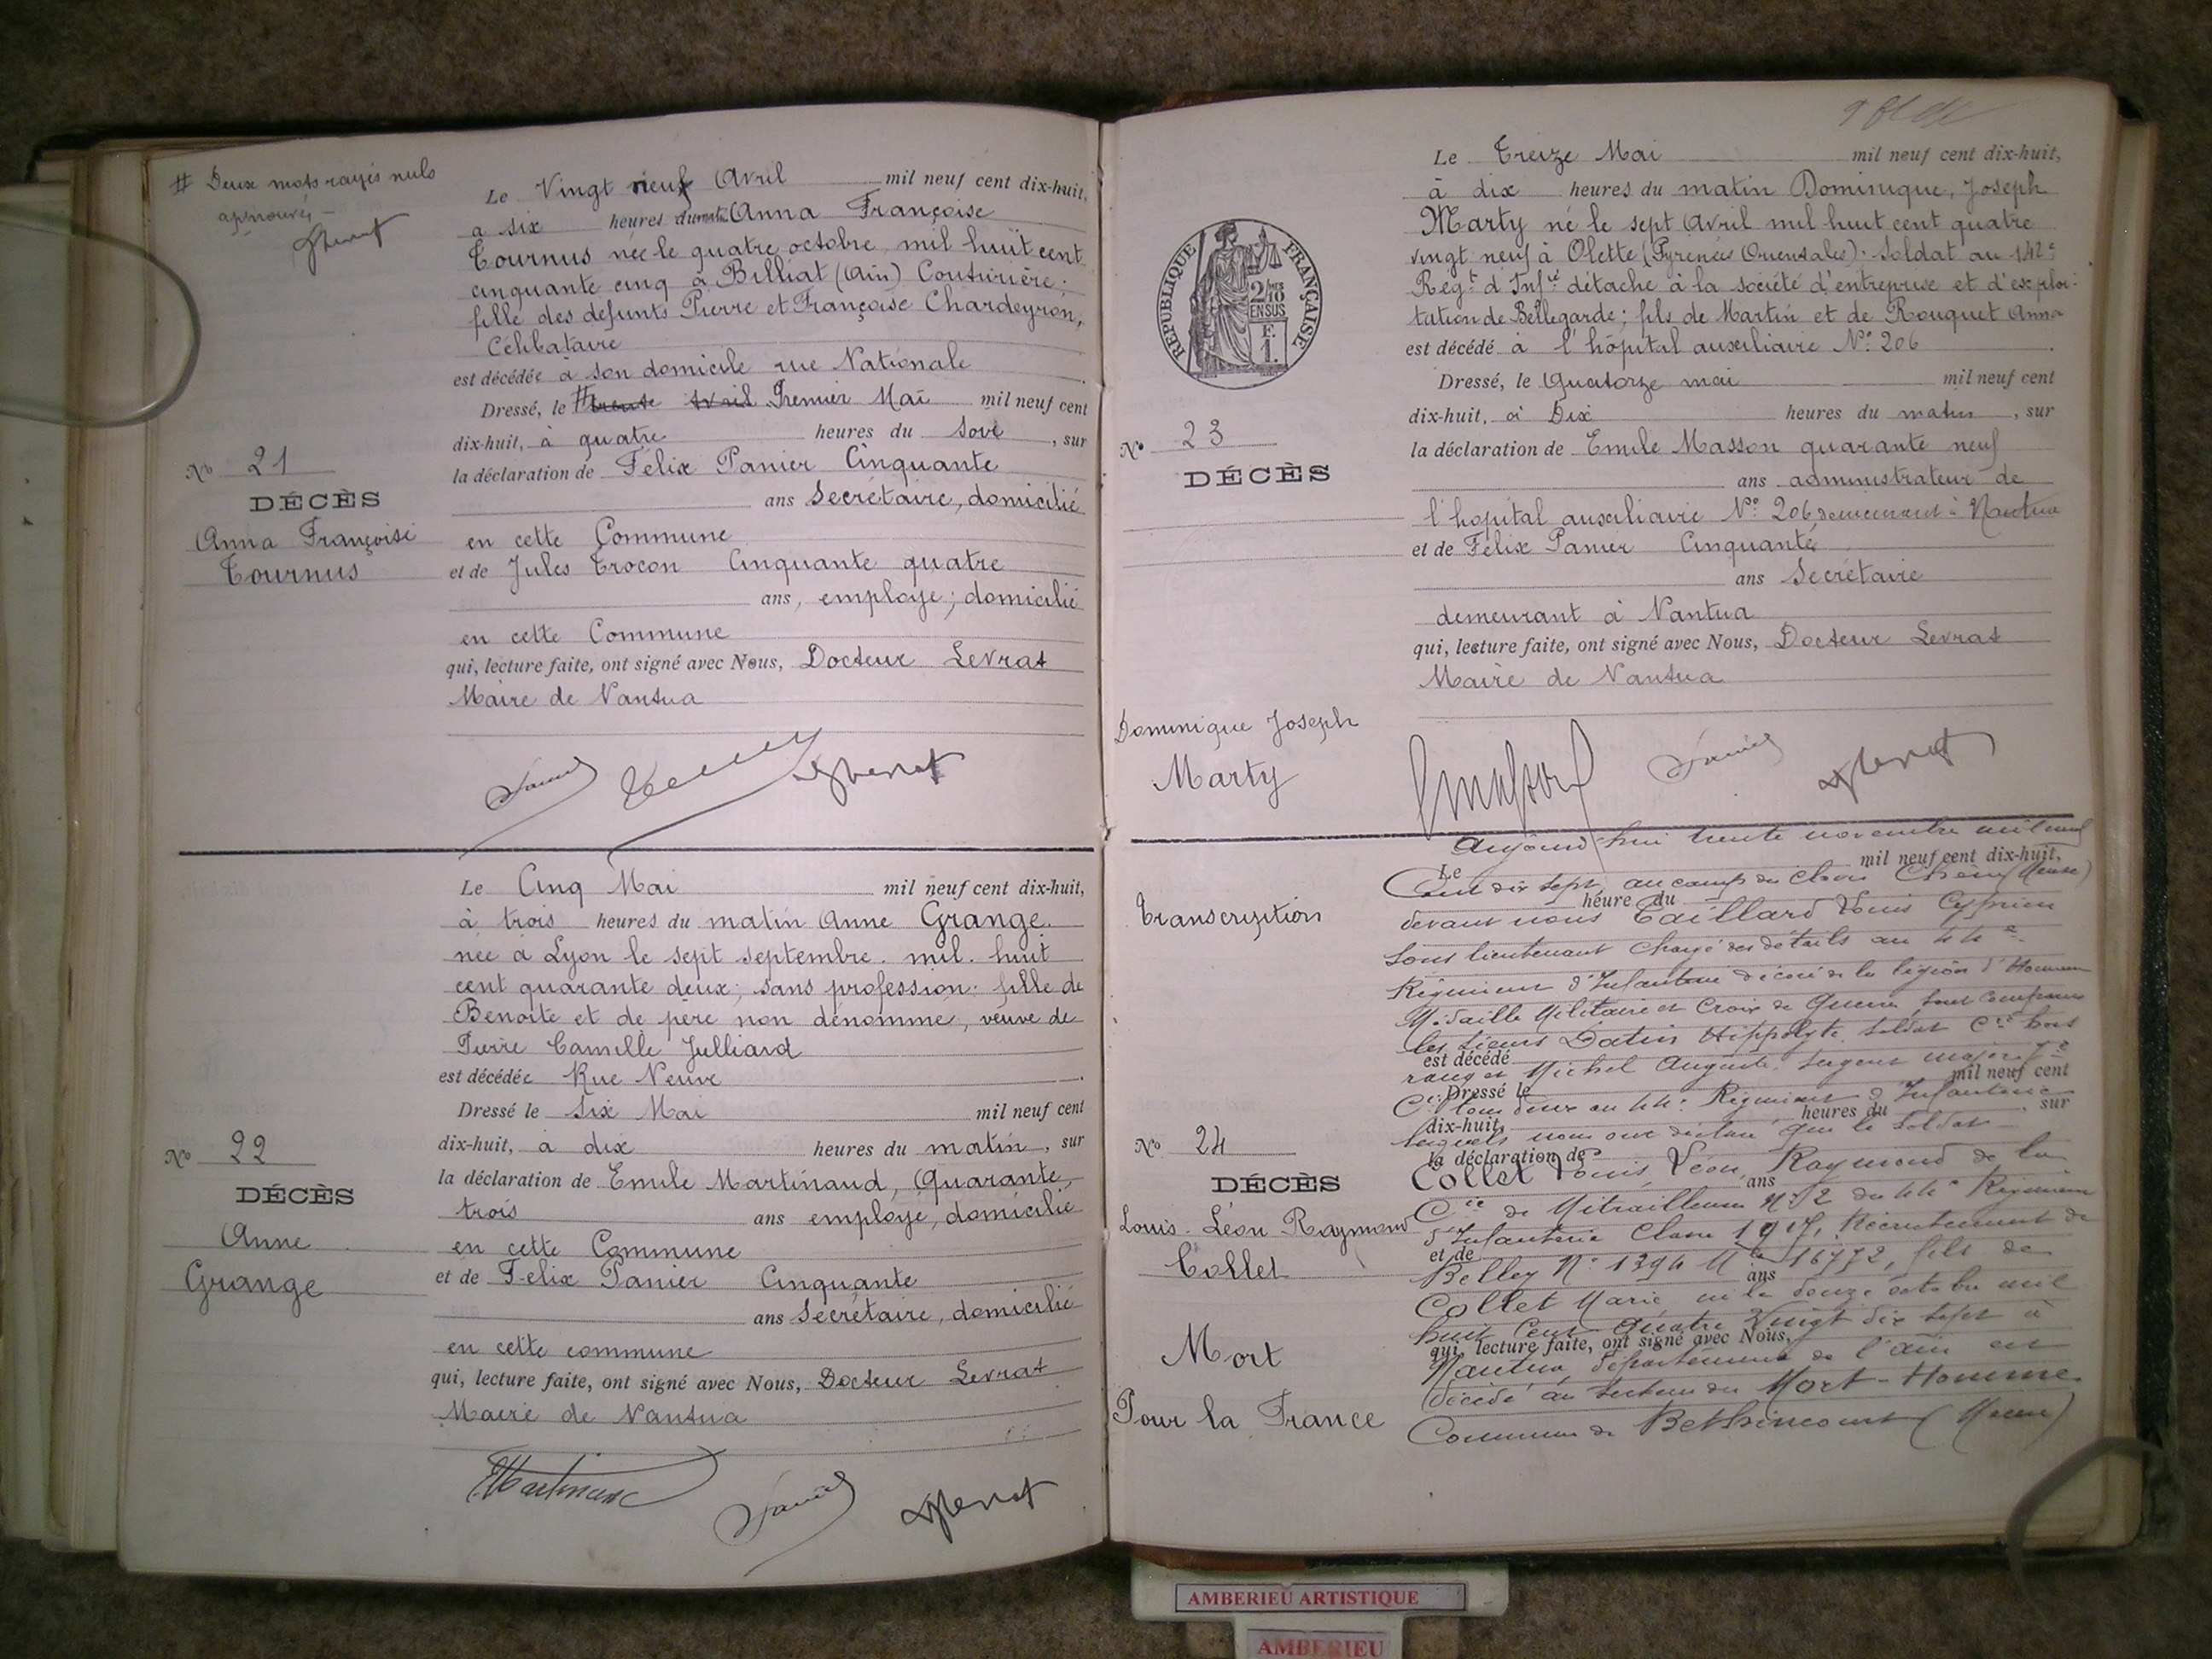 # Deux mots rayés nuls
approuvés
Le Vingt neuf Avril mil neuf cent dix-huit,
a six heures du matin Anna Françoise
Tournus née le quatre octobre mil huit cent
cinquante cinq à Billiat (Ain) Couturière;
fille des defunts Pierre et Françoise Chardeyron,
Célibataire
est décédée à son domicile rue Nationale
Dressé, le # trente Avril Premier Mai mil neuf cent
dix-huit, à quatre heures du soir, sur
la déclaration de Félix Panier Cinquante
ans Secrétaire, domicilié
en cette Commune
et de Jules Trocon Cinquante quatre
ans, employé; domicilié
en cette Commune
qui, lecture faite, ont signé avec Nous, Docteur Levrat
Maire de Nantua
No 21
DÉCÈS
Anna Françoise
Tournus
Le Cinq Mai mil neuf cent dix-huit,
à trois heures du matin Anne Grange
née à Lyon le sept septembre mil huit
cent quarante deux; sans profession; fille de
Benoite et de père non dénommé, veuve de
Pierre Camille Julliard
est décédée Rue Neuve
Dressé le Six Mai mil neuf cent
dix-huit, à dix heures du matin, sur
la déclaration de Emile Martinaud, Quarante,
trois ans employé, domicilié
en cette Commune
et de Felix Panier Cinquante
ans Secrétaire, domicilié
en cette commune
qui, lecture faite, ont signé avec Nous, Docteur Levrat
Maire de Nantua
No 22
DÉCÈS
Anne
Grange
Le Treize Mai mil neuf cent dix-huit,
à dix heures du matin Dominique, Joseph
Marty né le sept Avril mil huit cent quatre
vingt neuf à Olette (Pyrénées Orientales). Soldat au 142e
Regt d'Infie détaché à la société d'entreprise et d'exploi-
tation de Bellegarde; fils de Martin et de Rouquet Anna
est décédé à l'hôpital auxiliaire No 206
Dressé, le Quatorze mai mil neuf cent
dix-huit, à Dix heures du matin, sur
la déclaration de Emile Masson quarante neuf
ans administrateur de
l'hopital auxiliaire No 206 demeurant à Nantua
et de Félix Panier Cinquante
ans Secrétaire
demeurant à Nantua
qui, lecture faite, ont signé avec Nous, Docteur Levrat
Maire de Nantua
RÉPUBLIQUE FRANÇAISE
2/10
EN SUS
F.
1.
No 23
DÉCÈS
Dominique Joseph
Marty
Aujourd'hui trente novembre mil neuf
Le mil neuf cent dix-huit,
Cent dix sept, au camp du Clair Chêne (Meuse)
heure du
devant nous Taillard Louis Cyprien
Sous lieutenant chargé des détails au 44e
Régiment d'Infanterie décoré de la légion d'Honneur
Médaille Militaire et Croix de Guerre, sont comparus
les Sieurs Datin Hippolyte, soldat Cie hors
est décédé
rang et Michel Auguste, sergent major
mil neuf cent
Dressé le
Cie tous deux au 44e Régiment d'Infanterie
dix-huit, heures du, sur
lesquels nous ont déclaré que le soldat
la déclaration de
Collet Louis, Léon, Raymond de la
ans
Cie de Mitrailleuses No 2 du 44e Régiment
d'Infanterie Classe 1917, Recrutement de
et de
Belley No 1394 Mle 16772, fils de
ans
Collet Marie né le douze octobre mil
huit Cent Quatre Vingt dix sept à
qui, lecture faite, ont signé avec Nous,
Nantua, département de l'Ain est
décédé au Secteur du Mort-Homme
Commune de Béthincourt (Meuse)
Transcription
No 24
DÉCÈS
Louis Léon Raymond
Collet
Mort
Pour la France
AMBERIEU ARTISTIQUE
AMBERIEU